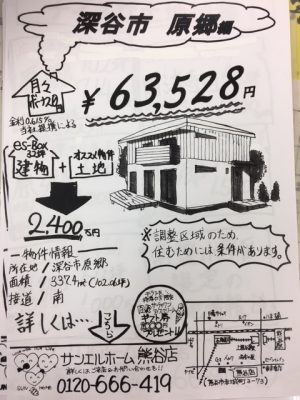 深谷市 原郷編
月々
ボーナス0
¥63,528円
金利0.615%
当社提携による
es-Box
32坪
建物
+
オススメ物件
土地
2,400万円
※調整区域のため
住むためには条件があります。
一物件情報
所在地/深谷市原郷
面積/337.4㎡(102.06坪)
接道/南
詳しくは…
こちら
プレゼント!!
サンエルホーム 熊谷店
詳しくはご来店&お問い合わせを!!
SUN HOME
0120-666-419